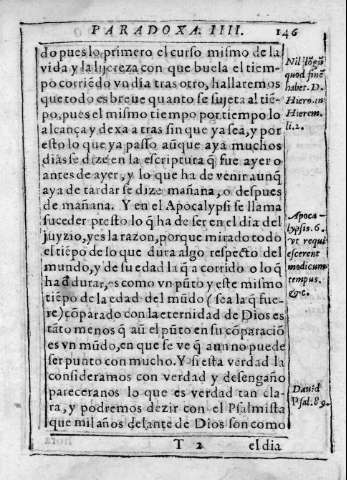 PARADOXA IIII. 146
do pues lo primero el curso mismo de la
vida y la lijereza con que buela el tiem-
po corriẽdo vn dia tras otro, hallaremos
que todo es breue quanto se sujeta al tiẽ-
po, pues el mismo tiempo por tiempo lo
alcança y dexa a tras sin que ya sea, y por
esto lo que ya passo aũque aya muchos
dias se dize en la escriptura q̃ fue ayer o
antes de ayer, y lo que ha de venir aunq̃
aya de tardar se dize mañana, o despues
de mañana. Y en el Apocalypsi se llama
suceder presto lo q̃ ha de ser en el dia del
juyzio, y es la razon, porque mirado todo
el tiẽpo de lo que dura algo respecto del
mundo, y de su edad la q̃ a corrido o lo q̃
ha d durar, es como vn pũto y este mismo
tiẽpo de la edad del mũdo (sea la q̃ fue-
re) cõparado con la eternidad de Dios es
tãto menos q̃ aũ el pũto en su cõparaciõ
es vn mũdo, en que se ve q̃ aun no puede
ser punto con mucho. Y si esta verdad la
consideramos con verdad y desengaño
pareceranos lo que es verdad tan cla-
ra, y podremos dezir con el Psalmista
que mil años delante de Dios son como
T 2 el dia
Nil lõgũ
quod finẽ
haber. D.
Hiero. in
Hierem.
li. 2.
Apoca-
lypsis. 6.
vt requi
escerent
modicum
tempus.
&c.
Dauid
Psal. 89.